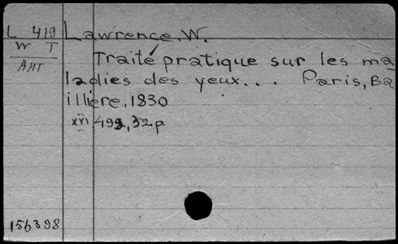 L 419 Lawrence, W.
W T
AHT
Traité pratique sur les ma
ladies des yeux... Paris, Ba
illière, 1830
xvi 492, 32p
156398